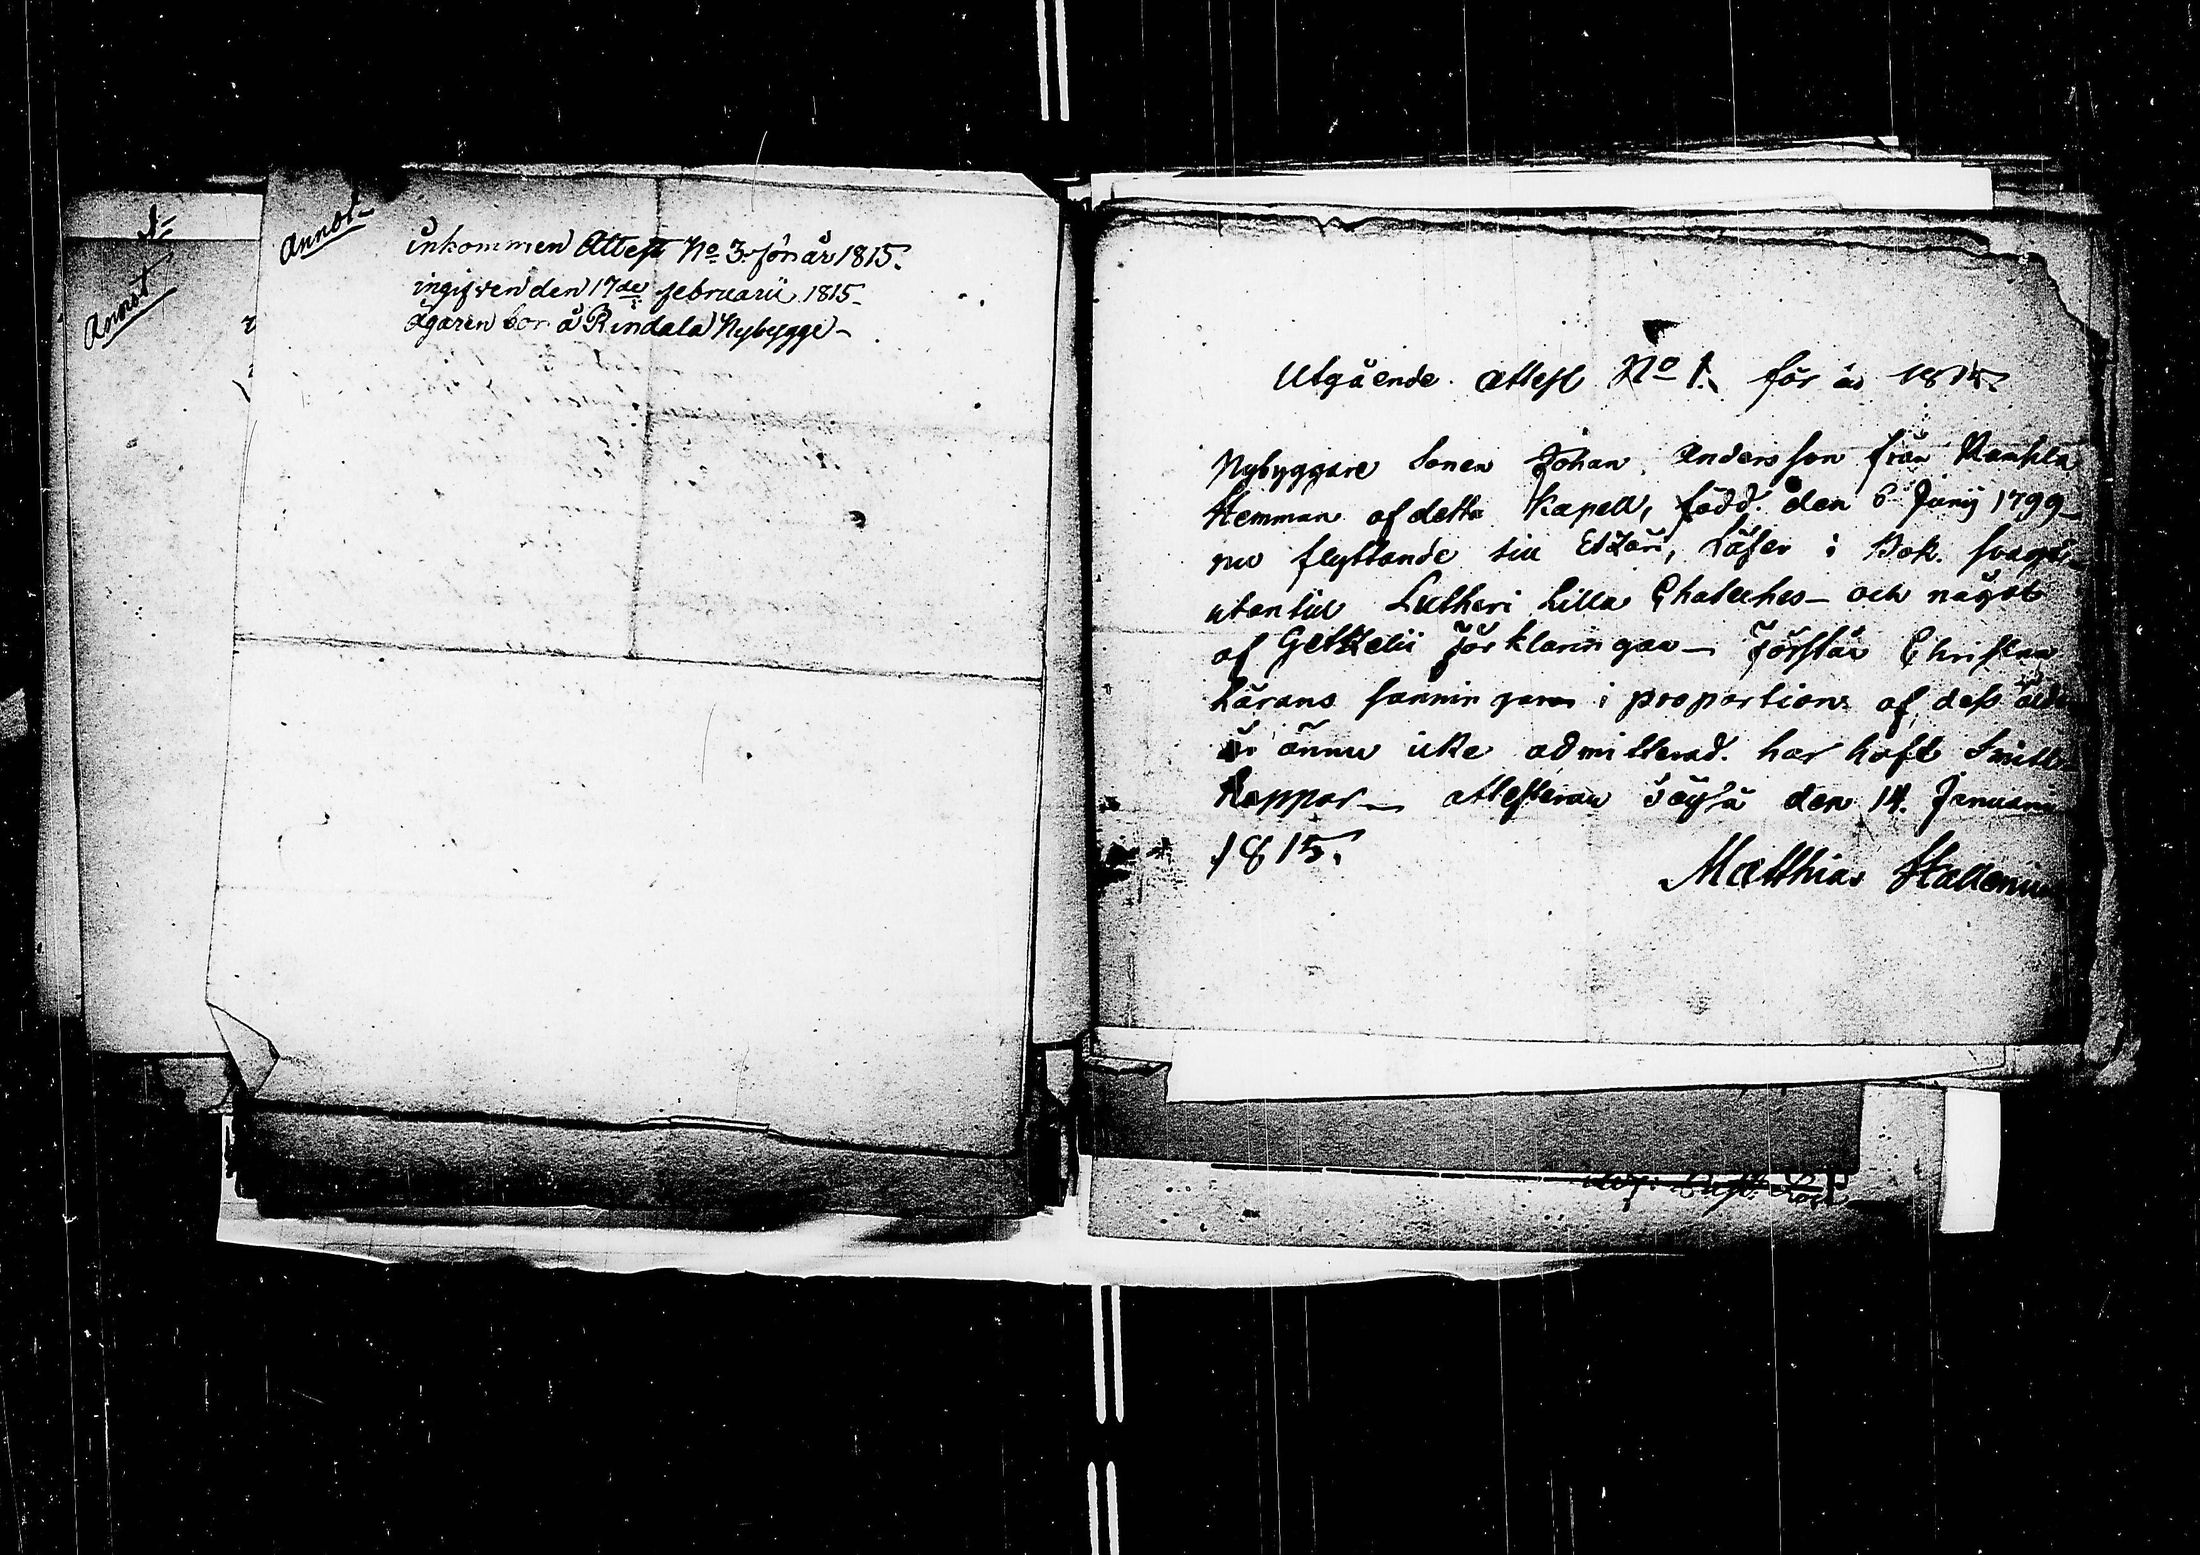 Annot
Annot-
inkommen Attest No 3. för år 1815.
ingifven den 17de februarii 1815-
ägaren bor å Rindala Nybygge-
Utgående attest No 1. för år 1815.
Nybyggare Sonen Johan Andersson från
Hemman af detta Kapell, född. den 6 Junij 1799-
nu flyttande till Etzäri, Läser i Bok. svagt-
utantill Lutheri Lilla Chateches- och något
af Getzelii Förklaringar- Förstår Christna
Lärans sanningar i proportion af dess ålder
är ännu icke admitterad. har haft Smitt-
Koppor- attesterar Söyrä den 14. Januarii
1815.
Matthias